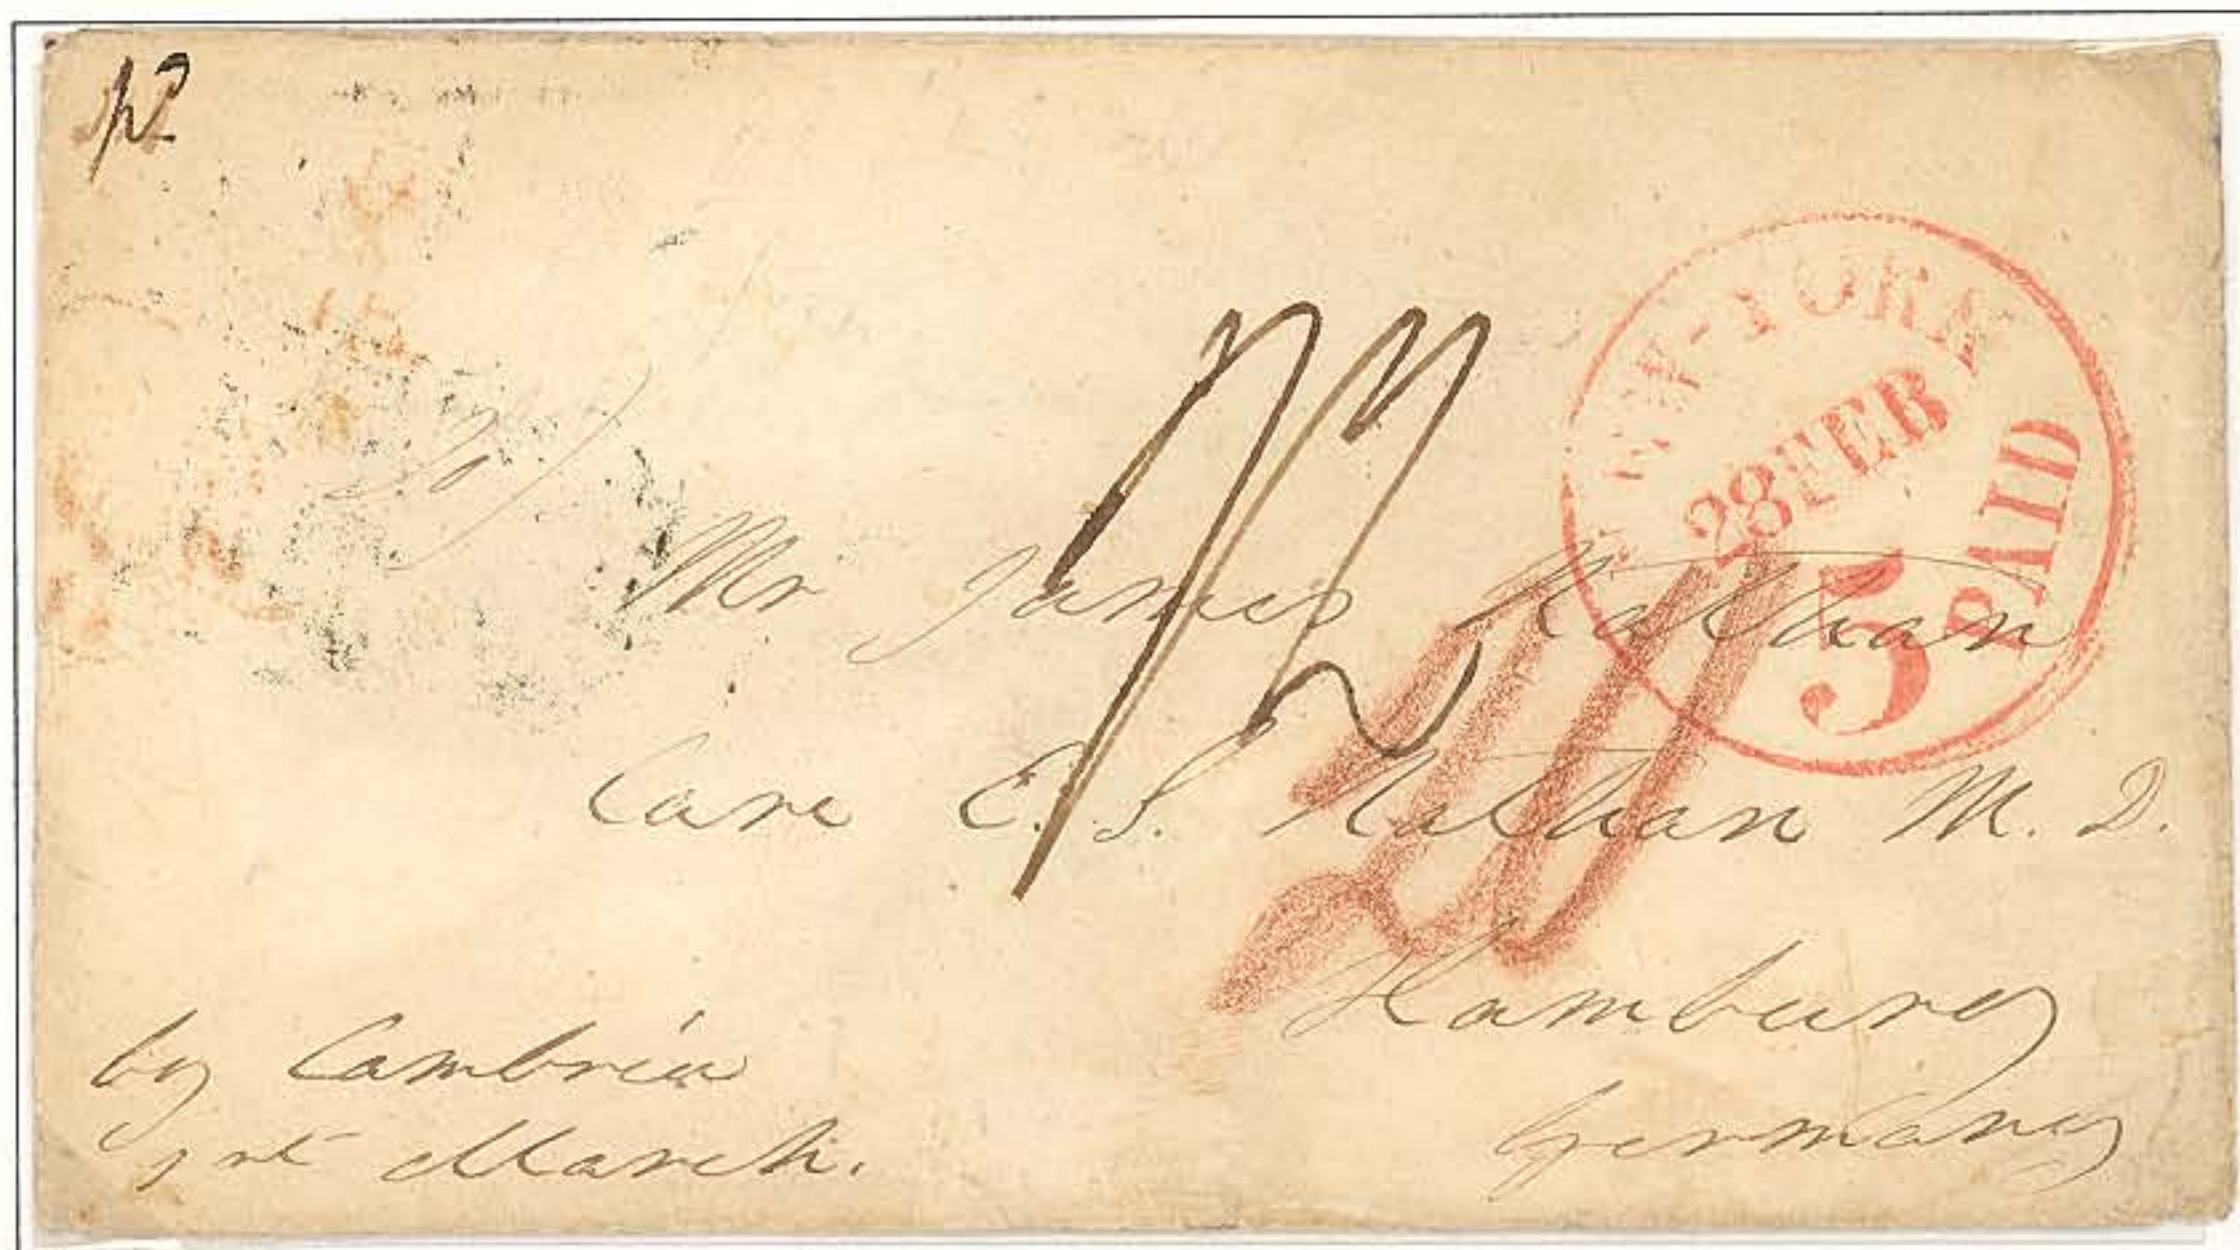 pd
NEW-YORK
28 FEB
5
PAID
Mr James Nathan
Care E. S. Nathan M. D.
Hamburg
Germany
by Cambria
1st March.